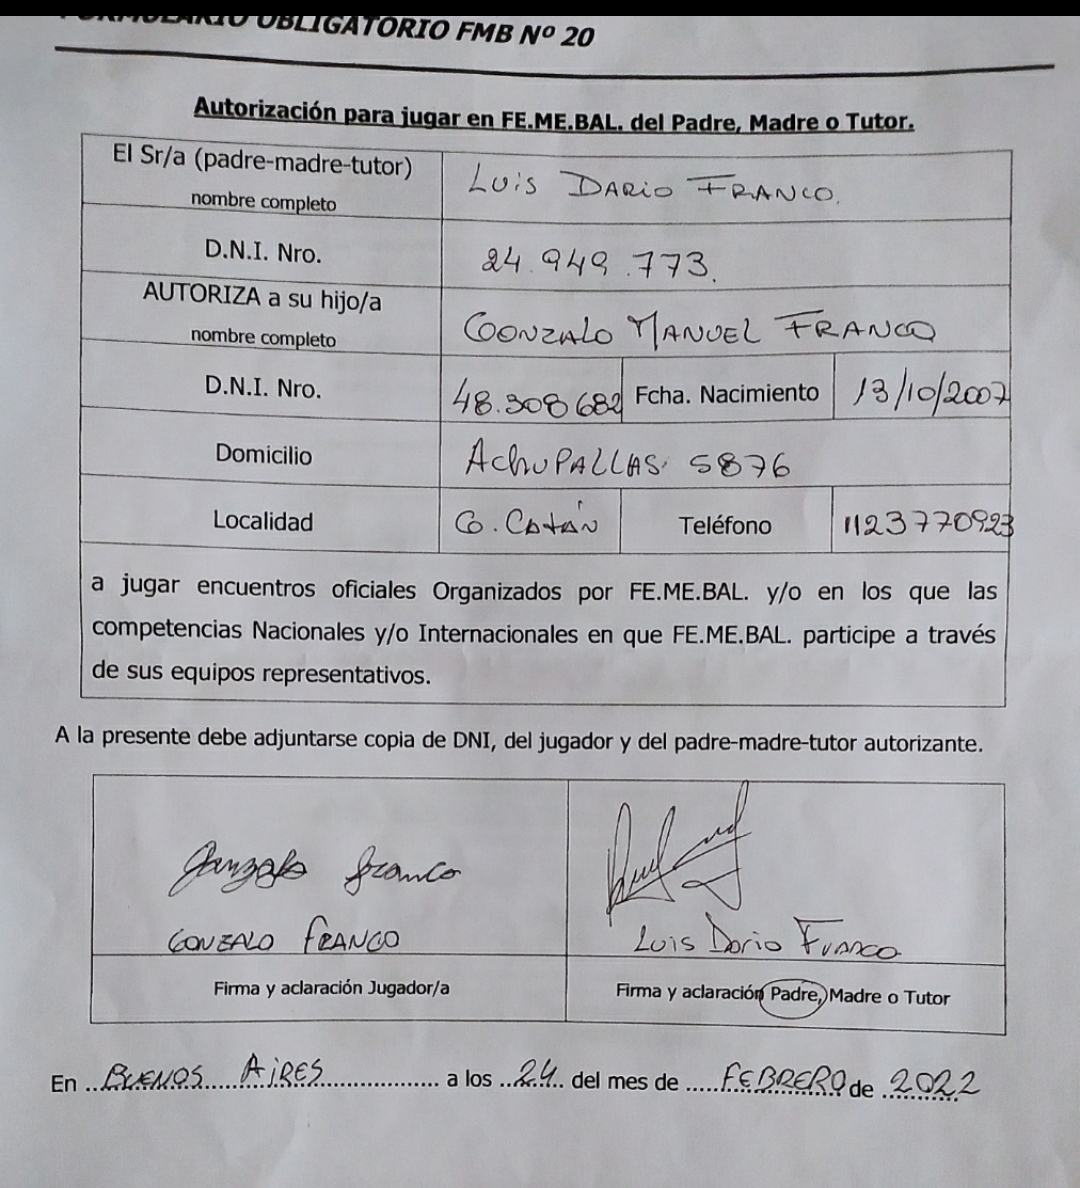 FORMULARIO OBLIGATORIO FMB Nº 20
Autorización para jugar en FE.ME.BAL. del Padre, Madre o Tutor.
El Sr/a (padre-madre-tutor) nombre completo
LUIS DARIO FRANCO.
D.N.I. Nro.
24.949.773.
AUTORIZA a su hijo/a nombre completo
GONZALO MANUEL FRANCO
D.N.I. Nro.
48.308682
Fcha. Nacimiento
13/10/2007
Domicilio
ACHUPALLAS 5876
Localidad
G. CATÁN
Teléfono
1123770923
a jugar encuentros oficiales Organizados por FE.ME.BAL. y/o en los que las
competencias Nacionales y/o Internacionales en que FE.ME.BAL. participe a través
de sus equipos representativos.
A la presente debe adjuntarse copia de DNI, del jugador y del padre-madre-tutor autorizante.
Gonzalo Franco
GONZALO FRANCO
Luis Dario Franco
Firma y aclaración Jugador/a
Firma y aclaración Padre, Madre o Tutor
En ..BUENOS AIRES.. a los ..24.. del mes de .....FEBRERO de 2022